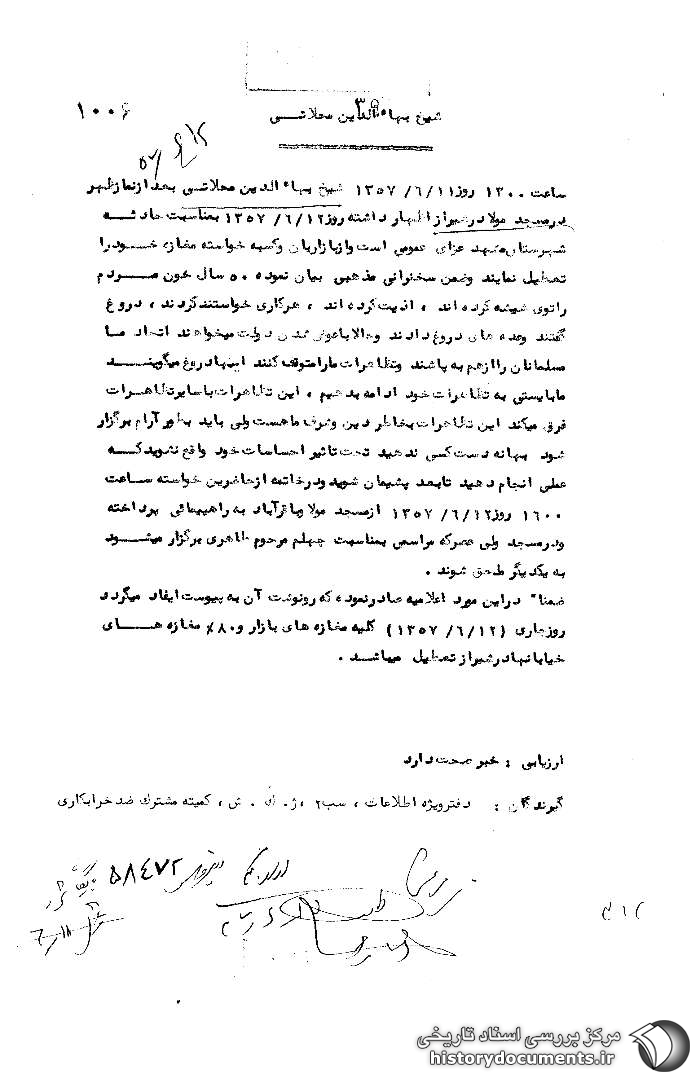 ۱۰۰۶
شیخ بهاءالدین محلاتی
۵۷/۶/۱۲
ساعت ۱۳۰۰ روز ۱۳۵۷/۶/۱۱ شیخ بهاء الدین محلاتی بعد از نماز ظهر
در مسجد مولا در شیراز اظهار داشته روز ۱۳۵۷/۶/۱۲ بمناسبت حادثه
شهرستان مشهد عزای عمومی است و از بازاریان و کسبه خواسته مغازه خود را
تعطیل نمایند و ضمن سخنرانی مذهبی بیان نموده ۵۰ سال خون مردم
را توی شیشه کرده اند ، اذیت کرده اند ، هر کاری خواستند کردند ، دروغ
گفتند وعده های دروغ دادند و حالا با عوض شدن دولت میخواهند اتحاد ما
مسلمانان را از هم به پاشند و تظاهرات ما را متوقف کنند اینها دروغ میگویند
ما بایستی به تظاهرات خود ادامه بدهیم ، این تظاهرات با سایر تظاهرات
فرق میکند این تظاهرات بخاطر دین و شرف ما هست ولی باید بطور آرام برگزار
شود بهانه دست کسی ندهید تحت تاثیر احساسات خود واقع نشوید که
عملی انجام دهید تا بعد پشیمان شوید و در خاتمه از حاضرین خواسته ساعت
۱۶۰۰ روز ۱۳۵۷/۶/۱۲ از مسجد مولا و باقرآباد به راهپیمائی پرداخته
و در مسجد ولی عصر که مراسمی بمناسبت چهلم مرحوم طاهری برگزار میشود
به یکدیگر ملحق شوند .
ضمنا" در این مورد اعلامیه صادر نموده که رونوشت آن به پیوست ایفاد میگردد
روز جاری (۱۳۵۷/۶/۱۲) کلیه مغازه های بازار و ۸۰٪ مغازه های
خیابانها در شیراز تعطیل میباشد .
ارزیابی : خبر صحت دارد
گیرندگان : دفتر ویژه اطلاعات ، سب۲ ، ژ . ك . ش ، کمیته مشترك ضد خرابکاری
۵۸۴۷۲
۳۱۲
مرکز بررسی اسناد تاریخی
historydocuments.ir